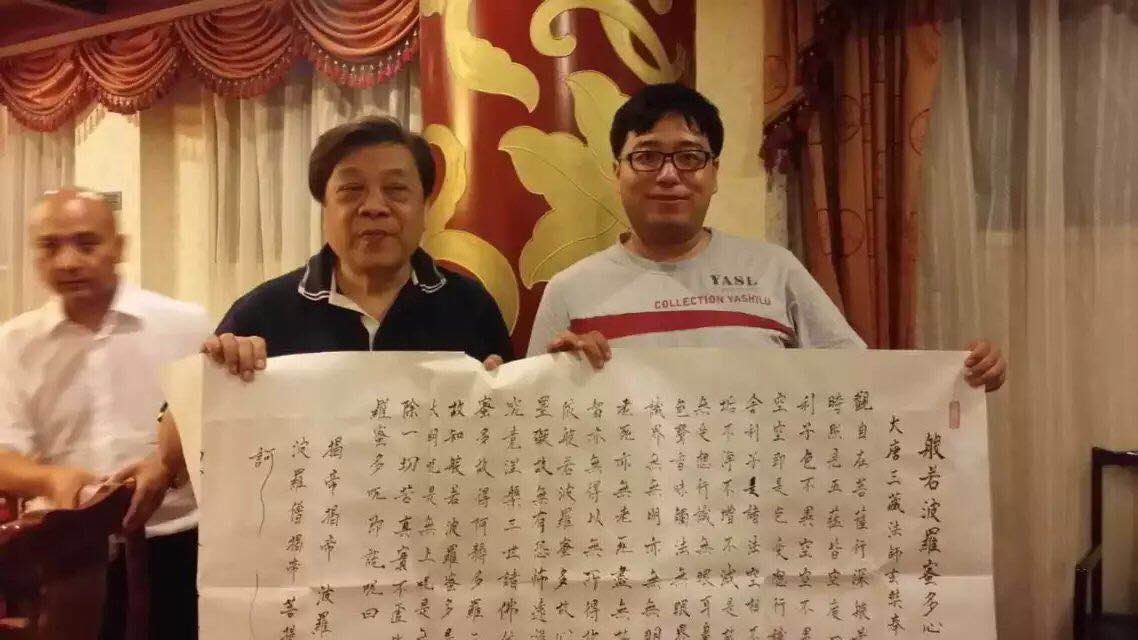 YASL
COLLECTION YASHILU
般若波羅蜜多心
大唐三藏法師玄奘奉
觀自在菩薩行深般若
時照見五蘊皆空度一
利子色不異空空不異
空空即是色受想行識
舍利子是諸法空相不
垢不淨不增不減是故
無受想行識無眼耳鼻
色聲香味觸法無眼界
識界無無明亦無無明
老死亦無老死盡無苦
智亦無得以無所得故
依般若波羅蜜多故心
罣礙故無有恐怖遠離
究竟涅槃三世諸佛依
蜜多故得阿耨多羅三
故知般若波羅蜜多是
大明咒是無上咒是無
除一切苦真實不虛故
羅蜜多咒即說咒曰
揭帝揭帝 波羅
波羅僧揭帝 菩提
訶